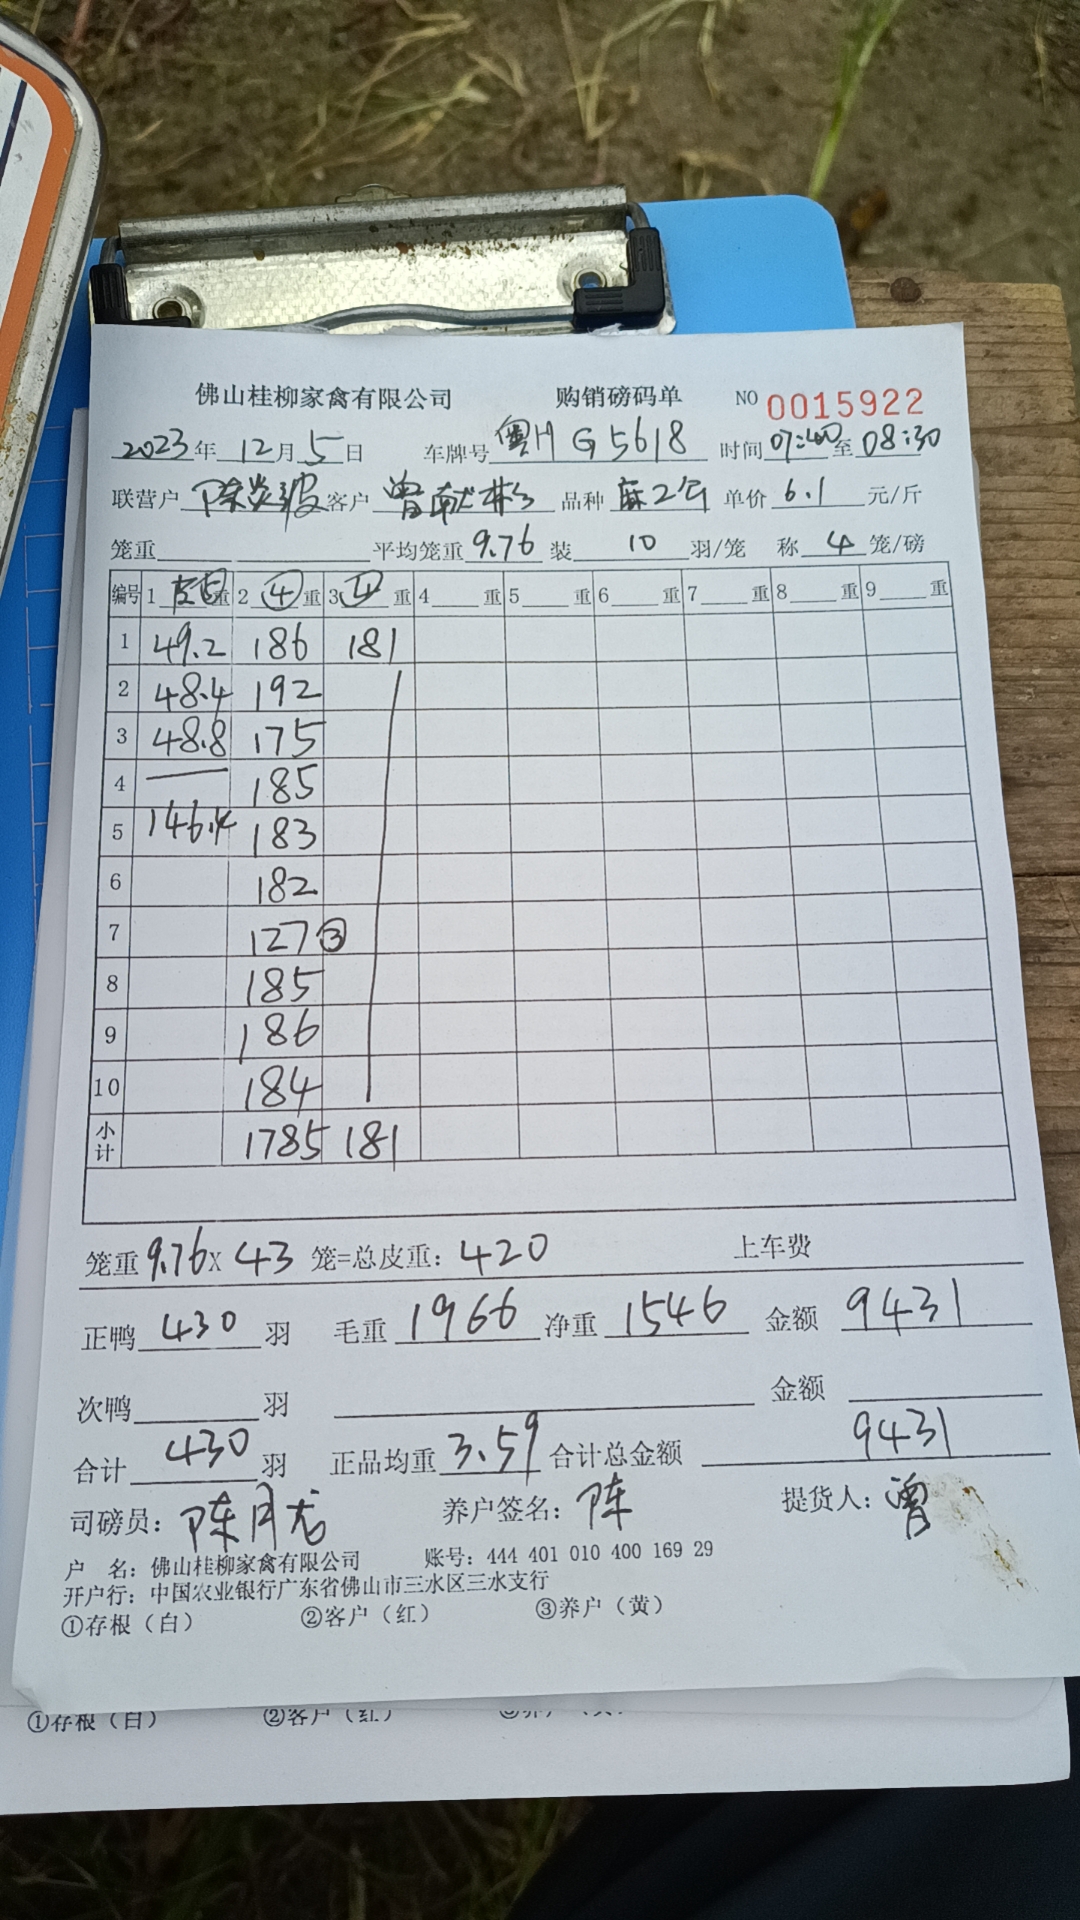 佛山桂柳家禽有限公司 购销磅码单 NO 0015922
2023年 12月 5日 车牌号 粤H G5618 时间 07:40 至 08:30
联营户 陈炎波 客户 曾献彬 品种 麻2公 单价 6.1 元/斤
笼重 平均笼重 9.76 装 10 羽/笼 称 4 笼/磅
编号 1 皮⑤重 2 ④ 重 3 ④ 重 4 重 5 重 6 重 7 重 8 重 9 重
1 49.2 186 181
2 48.4 192
3 48.8 175
4 185
5 146.4 183
6 182
7 127③
8 185
9 186
10 184
小计 1785 181
笼重 9.76 x 43 笼=总皮重: 420 上车费
正鸭 430 羽 毛重 1966 净重 1546 金额 9431
次鸭 羽 金额
合计 430 羽 正品均重 3.59 合计总金额 9431
司磅员: 陈月龙 养户签名: 陈 提货人: 曾
户 名: 佛山桂柳家禽有限公司 账号: 444 401 010 400 169 29
开户行: 中国农业银行广东省佛山市三水区三水支行
①存根（白） ②客户（红） ③养户（黄）
①存根（白） ②客户（红）